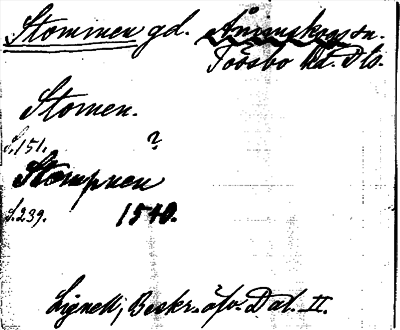 Stommen gd. Ånimskogs sn.
Tössbo hd. Dls.
Stomen.
S. 151.
?
Stompnen
S. 239. 1540.
Lignell, Beskr. öfv. Dal. II.